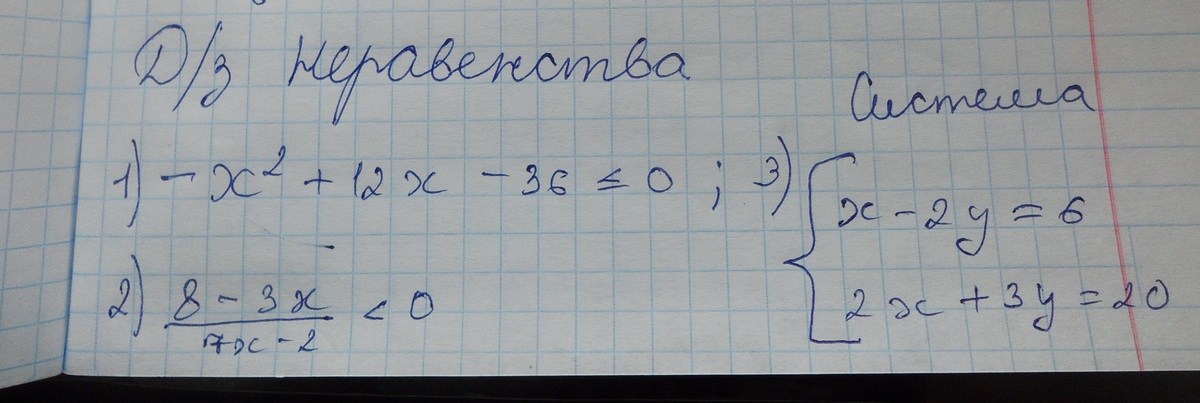 Д/з Неравенства
Система
1) -x² + 12x - 36 ≤ 0 ; 3) { x - 2y = 6
2x + 3y = 20
2) 8 - 3x / 7x - 2 < 0